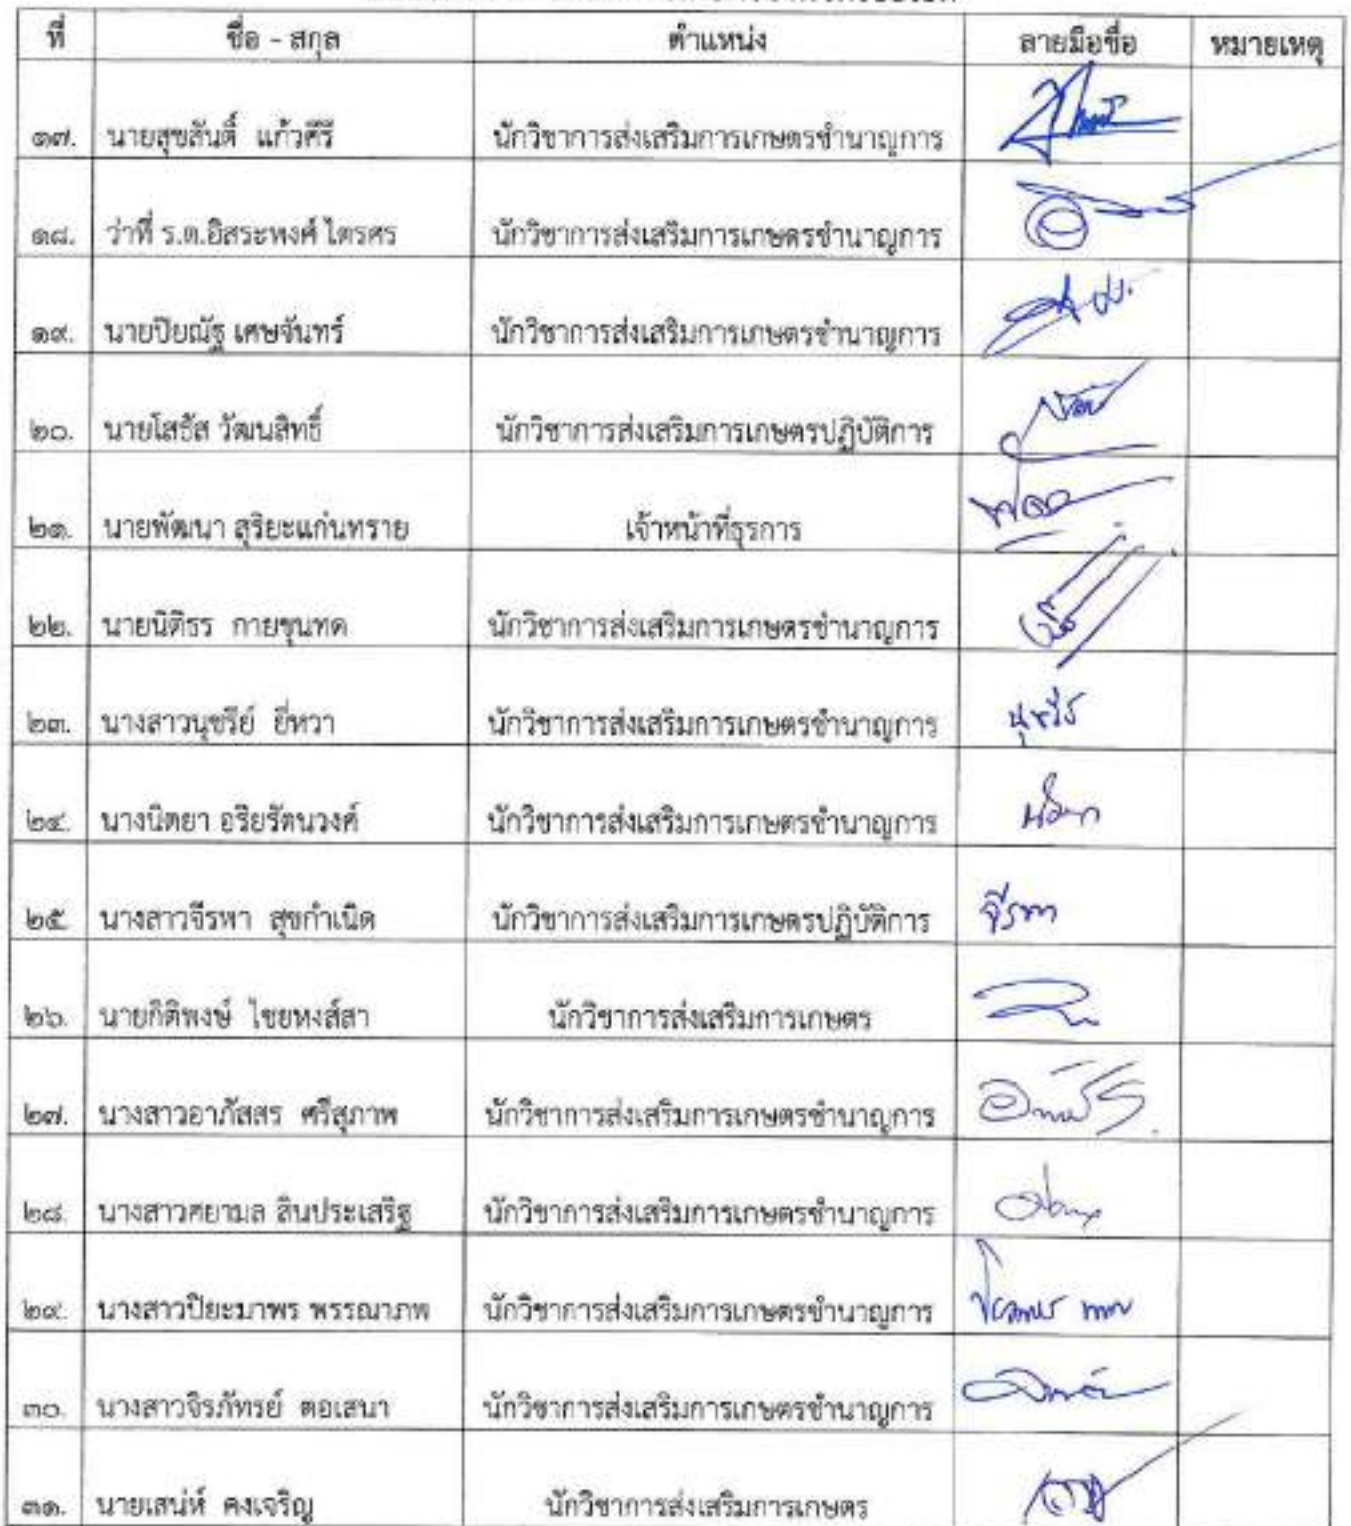 ที่ ชื่อ - สกุล ตำแหน่ง ลายมือชื่อ หมายเหตุ
๑๗. นายสุขสันติ์ แก้วศิริ นักวิชาการส่งเสริมการเกษตรชำนาญการ
๑๘. ว่าที่ ร.ต.อิสระพงศ์ ไตรศร นักวิชาการส่งเสริมการเกษตรชำนาญการ
๑๙. นายปิยณัฐ เศษจันทร์ นักวิชาการส่งเสริมการเกษตรชำนาญการ
๒๐. นายโสธัส วัฒนสิทธิ์ นักวิชาการส่งเสริมการเกษตรปฏิบัติการ
๒๑. นายพัฒนา สุริยะแก่นทราย เจ้าหน้าที่ธุรการ
๒๒. นายนิติธร กายขุนทด นักวิชาการส่งเสริมการเกษตรชำนาญการ
๒๓. นางสาวนุชรีย์ ยี่หวา นักวิชาการส่งเสริมการเกษตรชำนาญการ นุชรีย์
๒๔. นางนิตยา อริยรัตนวงศ์ นักวิชาการส่งเสริมการเกษตรชำนาญการ
๒๕. นางสาวจีรพา สุขกำเนิด นักวิชาการส่งเสริมการเกษตรปฏิบัติการ จีรพา
๒๖. นายกิติพงษ์ ไชยหงส์สา นักวิชาการส่งเสริมการเกษตร
๒๗. นางสาวอาภัสสร ศรีสุภาพ นักวิชาการส่งเสริมการเกษตรชำนาญการ
๒๘. นางสาวศยามล สินประเสริฐ นักวิชาการส่งเสริมการเกษตรชำนาญการ
๒๙. นางสาวปิยะมาพร พรรณาภพ นักวิชาการส่งเสริมการเกษตรชำนาญการ
๓๐. นางสาวจิรภัทรย์ ตอเสนา นักวิชาการส่งเสริมการเกษตรชำนาญการ
๓๑. นายเสน่ห์ คงเจริญ นักวิชาการส่งเสริมการเกษตร